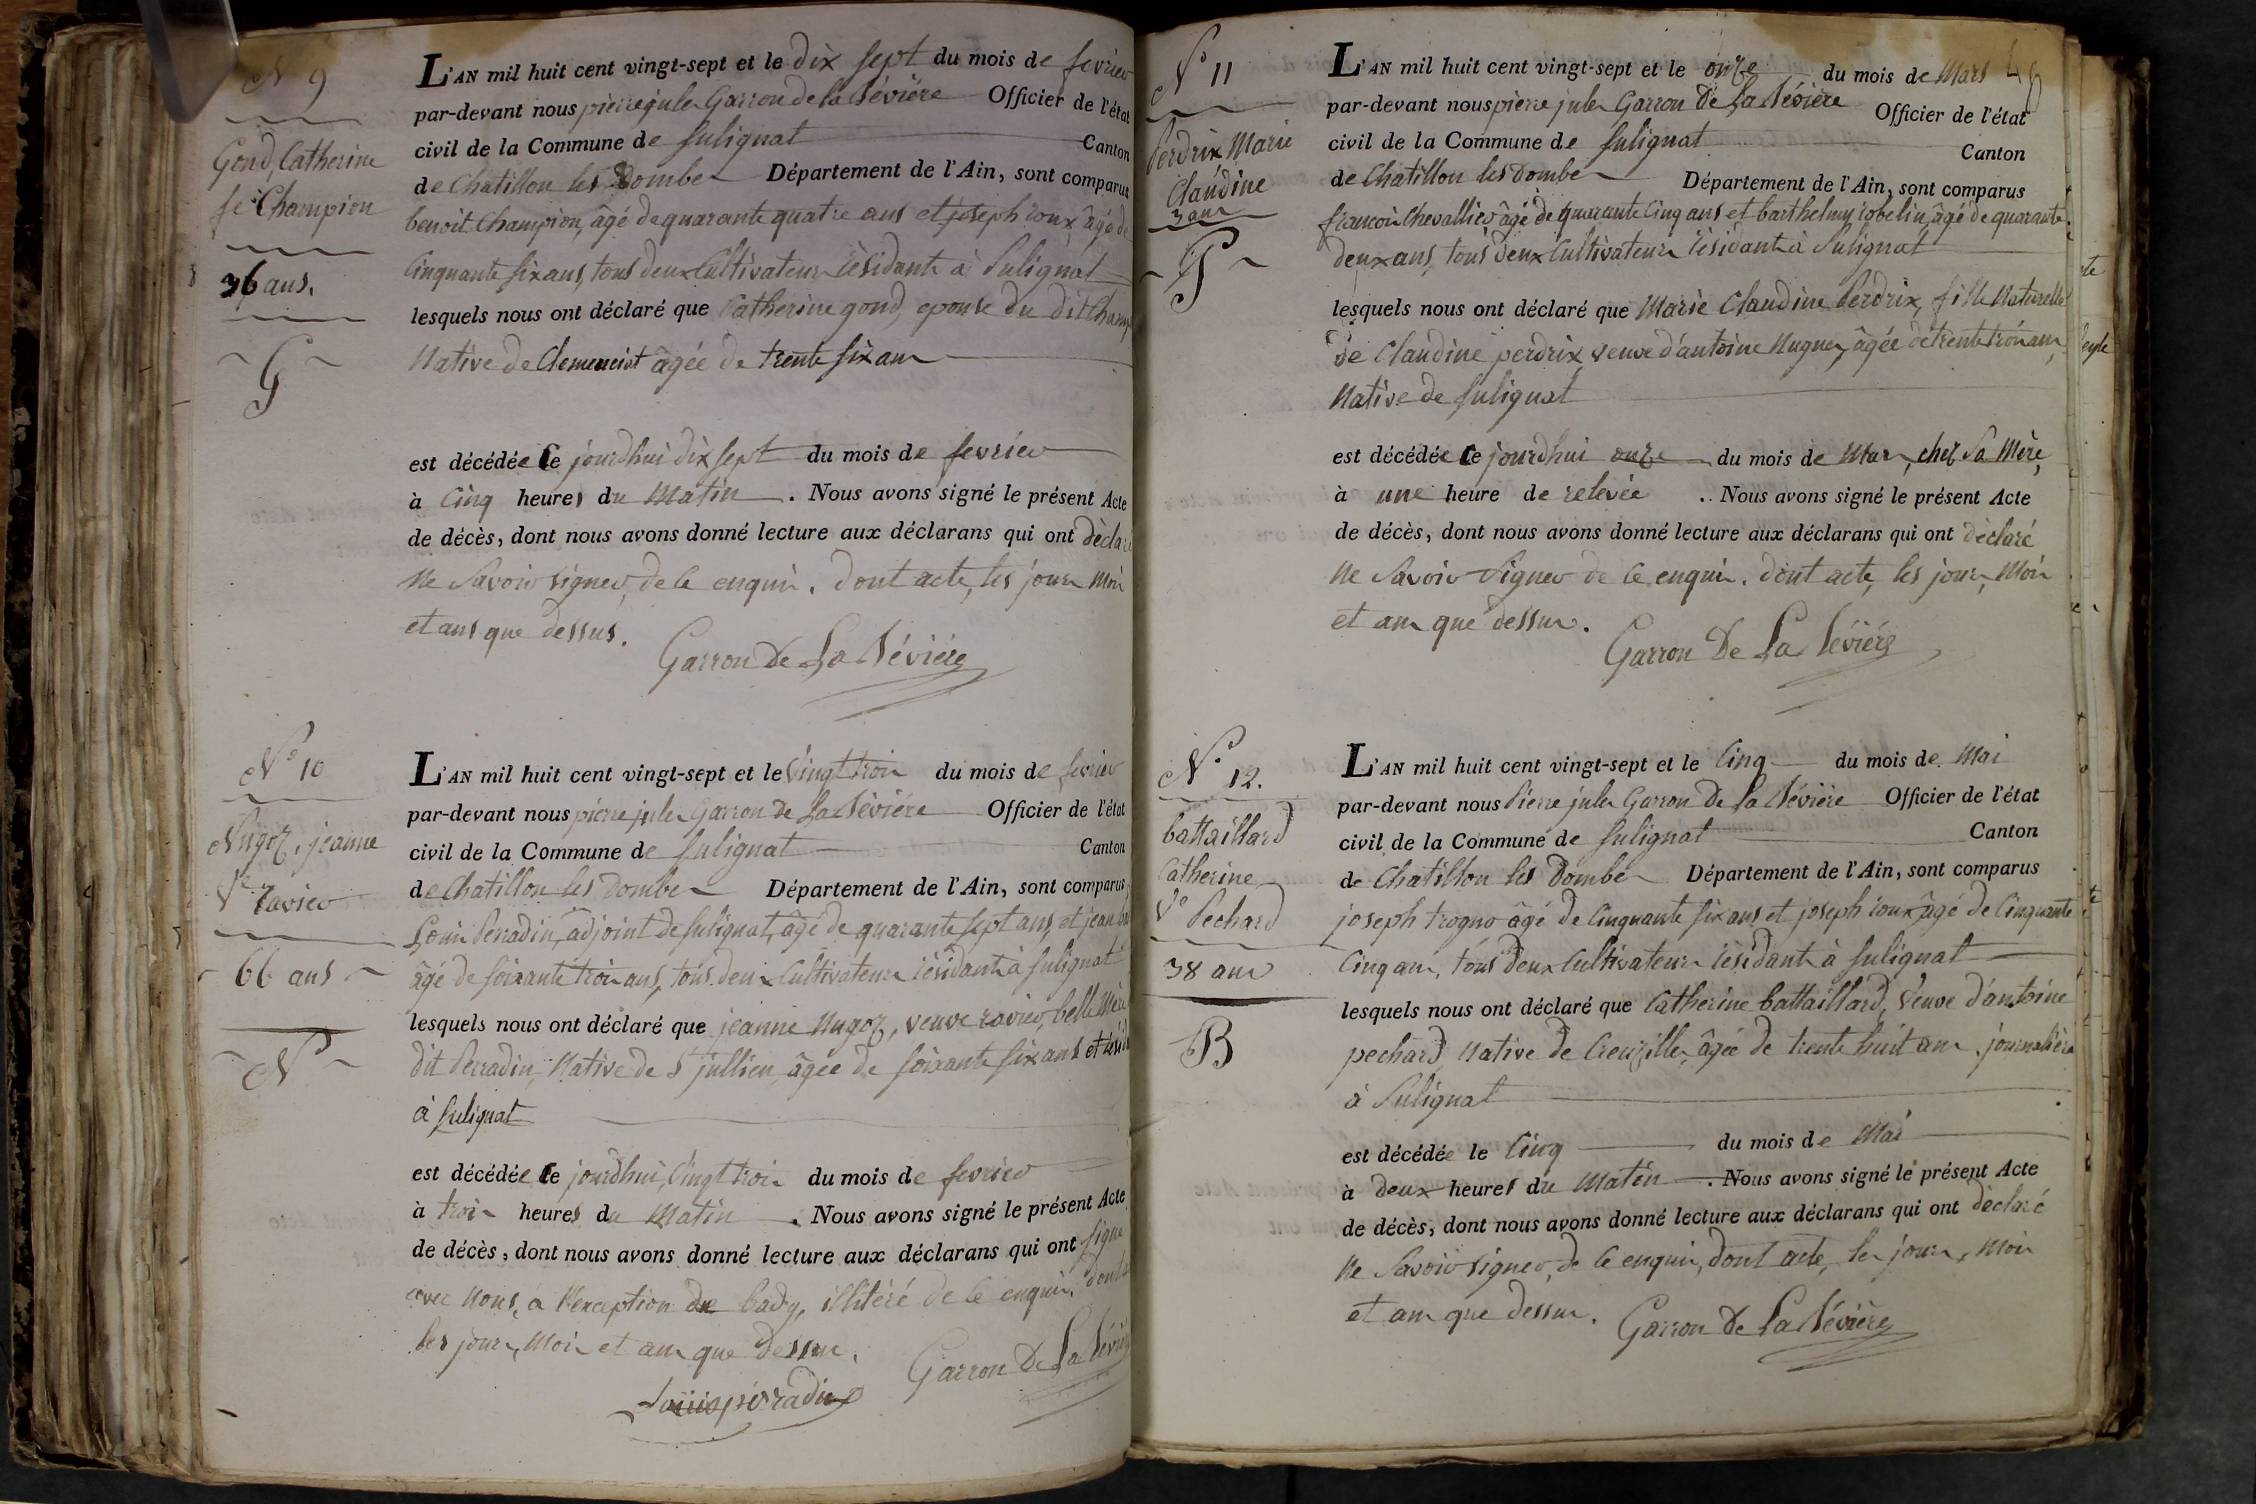 N° 9
Gond, Catherine
fe Champion
36 ans.
G
L'AN mil huit cent vingt-sept et le dix sept du mois de fevrier
par-devant nous pierre jules Garron de la Sévière Officier de l'état
civil de la Commune de Sulignat Canton
de Chatillon les Dombes Département de l'Ain, sont comparus
benoit Champion, âgé de quarante quatre ans et joseph roux, âgé de
Cinquante six ans, tous deux Cultivateurs résidants à Sulignat
lesquels nous ont déclaré que Catherine gond, epouse du dit Champ
Native de Clemenciat âgée de trente six ans
est décédée Ce jourdhui dix sept du mois de fevrier
à Cinq heures du Matin . Nous avons signé le présent Acte
de décès, dont nous avons donné lecture aux déclarans qui ont déclaré
Ne Savoir signer, de ce enquis. dont acte, les jour Mois
et ans que dessus.
Garron de La Sévière
N° 10
Nugoz, jeanne
Ve ravier
66 ans
N
L'AN mil huit cent vingt-sept et le Vingt trois du mois de fevrier
par-devant nous pierre jules Garron de La Sévière Officier de l'état
civil de la Commune de Sulignat Canton
de Chatillon les Dombes Département de l'Ain, sont comparus
Louis Perradin, adjoint de Sulignat, âgé de quarante sept ans, et jean
âgé de soixante trois ans, tous deux Cultivateurs résidants à Sulignat
lesquels nous ont déclaré que jeanne Nugoz, veuve ravier, belle Mère
dit Perradin, Native de St jullien, âgée de soixante six ans et
à Sulignat
est décédée Ce jourdhui, Vingt trois du mois de fevrier
à trois heures du Matin . Nous avons signé le présent Acte
de décès, dont nous avons donné lecture aux déclarans qui ont signé
avec Nous, à l'exception de bady, illitéré de ce enquis, dont
les jour, Mois et ans que dessus.
Garron De La Sévière
Louis perradin
N° 11
Perdrix Marie
Claudine
3 ans
P
L'AN mil huit cent vingt-sept et le onze du mois de Mars
par-devant nous pierre jules Garron De La Sévière Officier de l'état
civil de la Commune de Sulignat Canton
de Chatillon les Dombes Département de l'Ain, sont comparus
francois Chevallier, âgé de quarante Cinq ans et barthelmy gobelin, âgé de quarante
deux ans, tous deux Cultivateurs résidants à Sulignat
lesquels nous ont déclaré que Marie Claudine Perdrix, fille Naturelle
de Claudine perdrix, veuve d'antoine Nugues, âgée de trente trois ans,
Native de Sulignat
est décédée Ce jourdhui onze du mois de Mars, chez Sa Mère,
à une heure de relevée . Nous avons signé le présent Acte
de décès, dont nous avons donné lecture aux déclarans qui ont déclaré
Ne Savoir Signer de ce enquis. dont acte, les jour, Mois
et ans que dessus.
Garron De La Sévière
N° 12.
battaillard
Catherine
Ve Pechard
38 ans
B
L'AN mil huit cent vingt-sept et le Cinq du mois de Mai
par-devant nous Pierre jules Garron De La Sévière Officier de l'état
civil de la Commune de Sulignat Canton
de Chatillon les Dombes Département de l'Ain, sont comparus
joseph trogno âgé de Cinquante six ans et joseph roux âgé de Cinquante
Cinq ans, tous deux Cultivateurs résidants à Sulignat
lesquels nous ont déclaré que Catherine battaillard, Veuve d'antoine
pechard, Native de Creuzilles, âgée de trente huit ans, journalière
à Sulignat
est décédée le Cinq du mois de Mai
à deux heures du Matin . Nous avons signé le présent Acte
de décès, dont nous avons donné lecture aux déclarans qui ont déclaré
Ne Savoir signer, de ce enquis, dont acte, les jour, Mois
et ans que dessus.
Garron De La Sévière